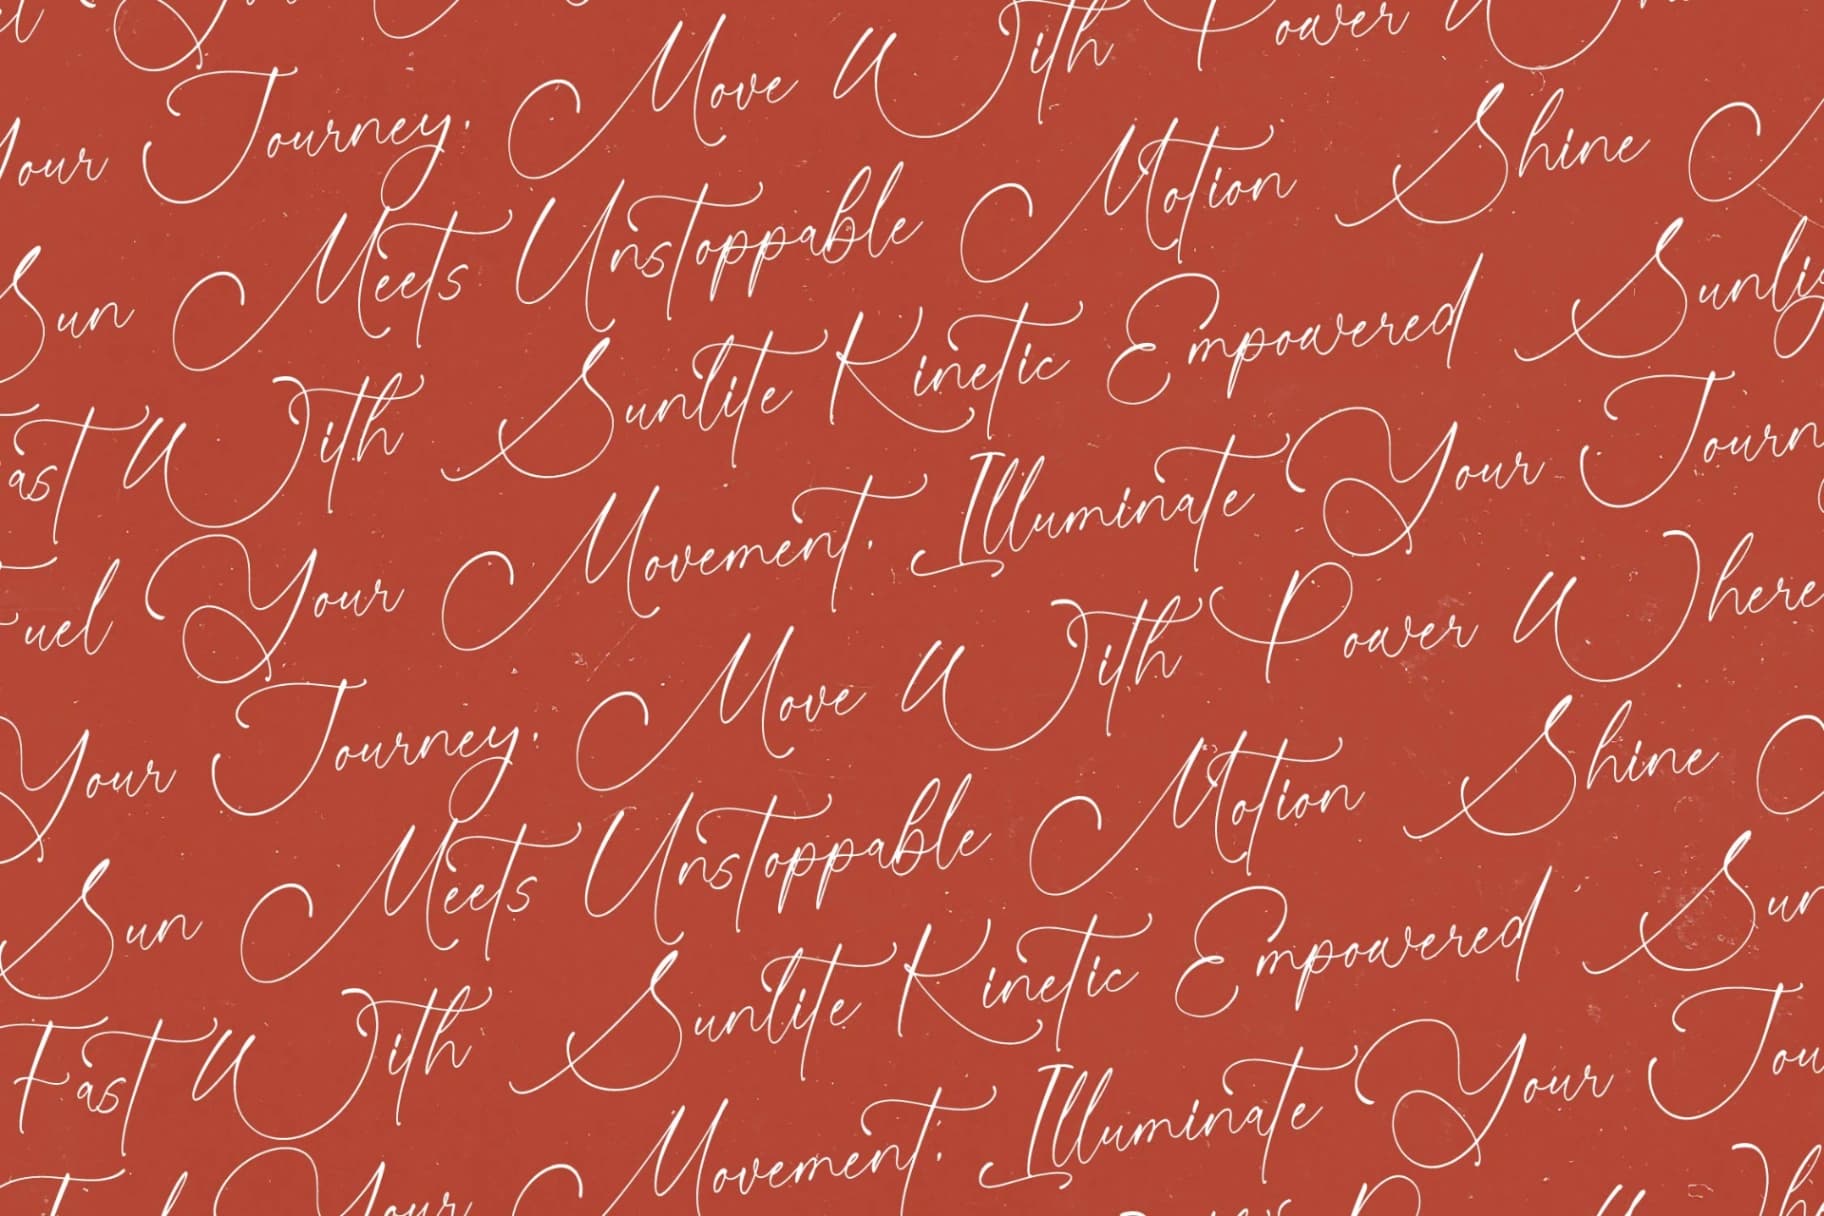 Your Journey. Move With Power
Sun Meets Unstoppable Motion Shine
Fast With Sunlite Kinetic Empowered
Fuel Your Movement. Illuminate Your
Your Journey. Move With Power Where
Sun Meets Unstoppable Motion Shine
Fast With Sunlite Kinetic Empowered
Your Movement. Illuminate Your